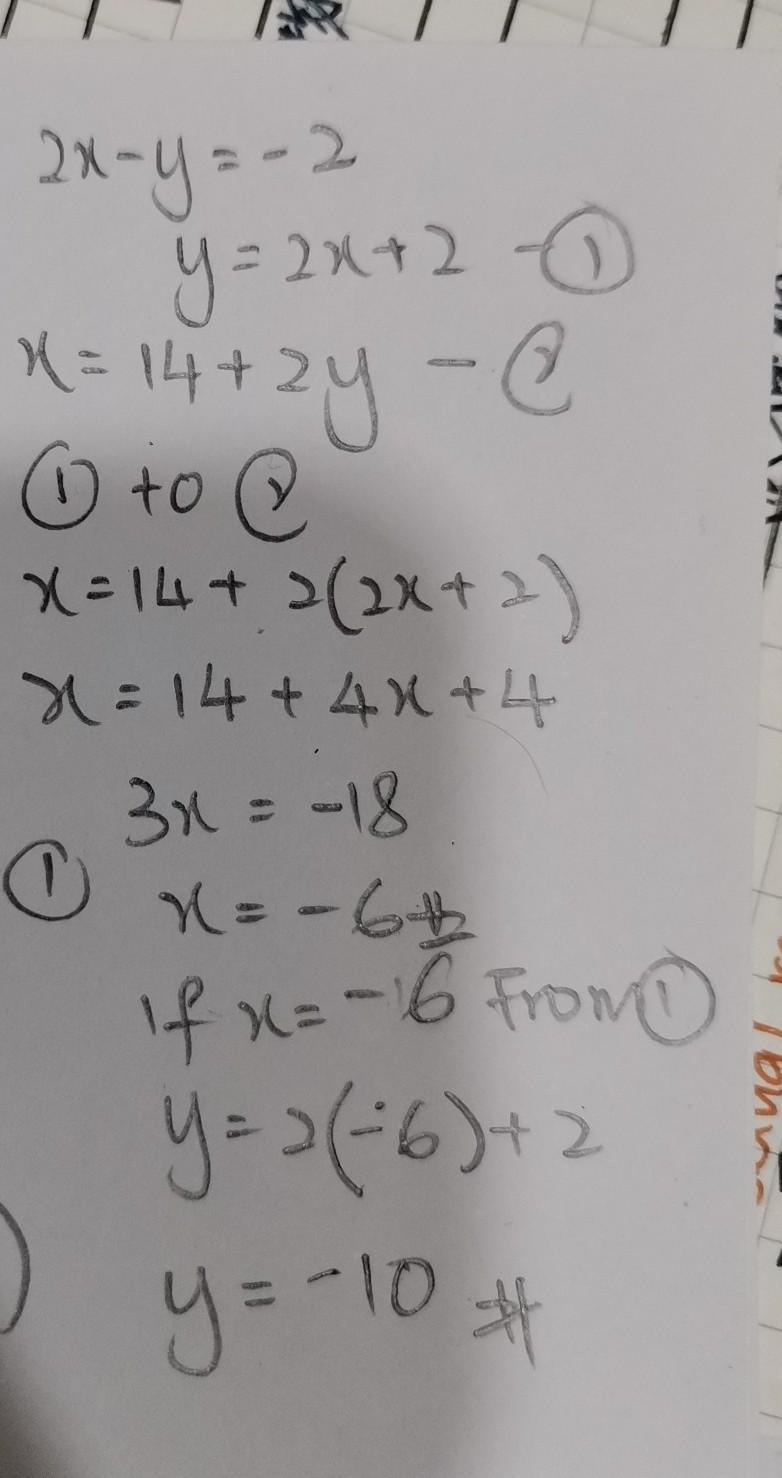 2x-y=-2
y=2x+2 -①
x=14+2y -②
① to ②
x=14+2(2x+2)
x=14+4x+4
3x=-18
① x=-6#
if x=-6 From①
y=2(-6)+2
y=-10 #